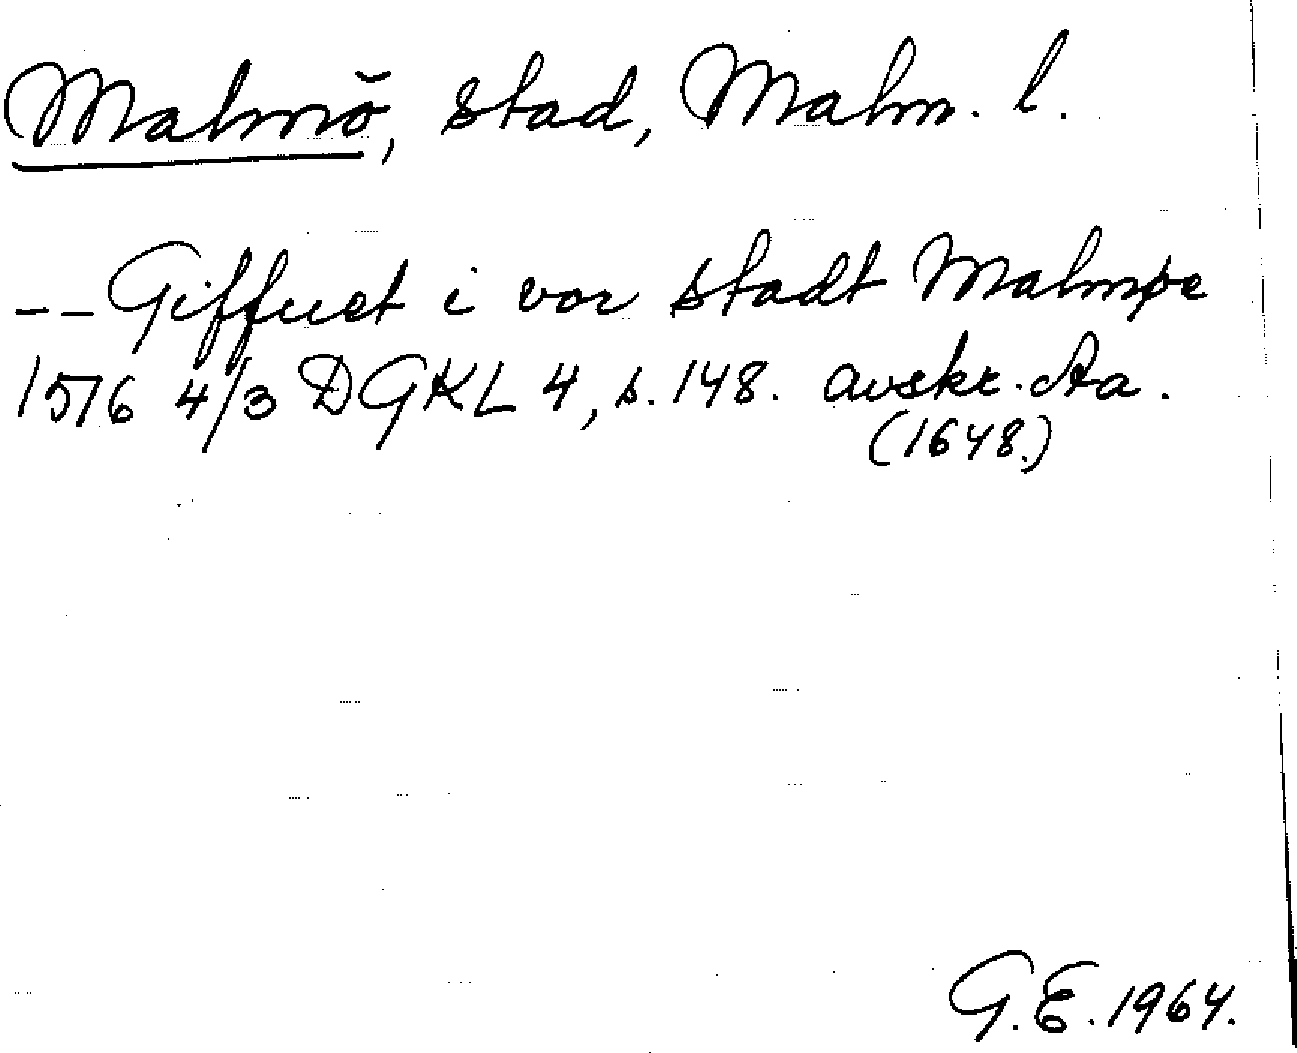 Malmö, stad, Malm. l.
-- Giffuet i vor stadt Malmøe
1576 4/3 DGKL 4, s. 148. avskr. Aa.
(1648.)
G.E. 1964.